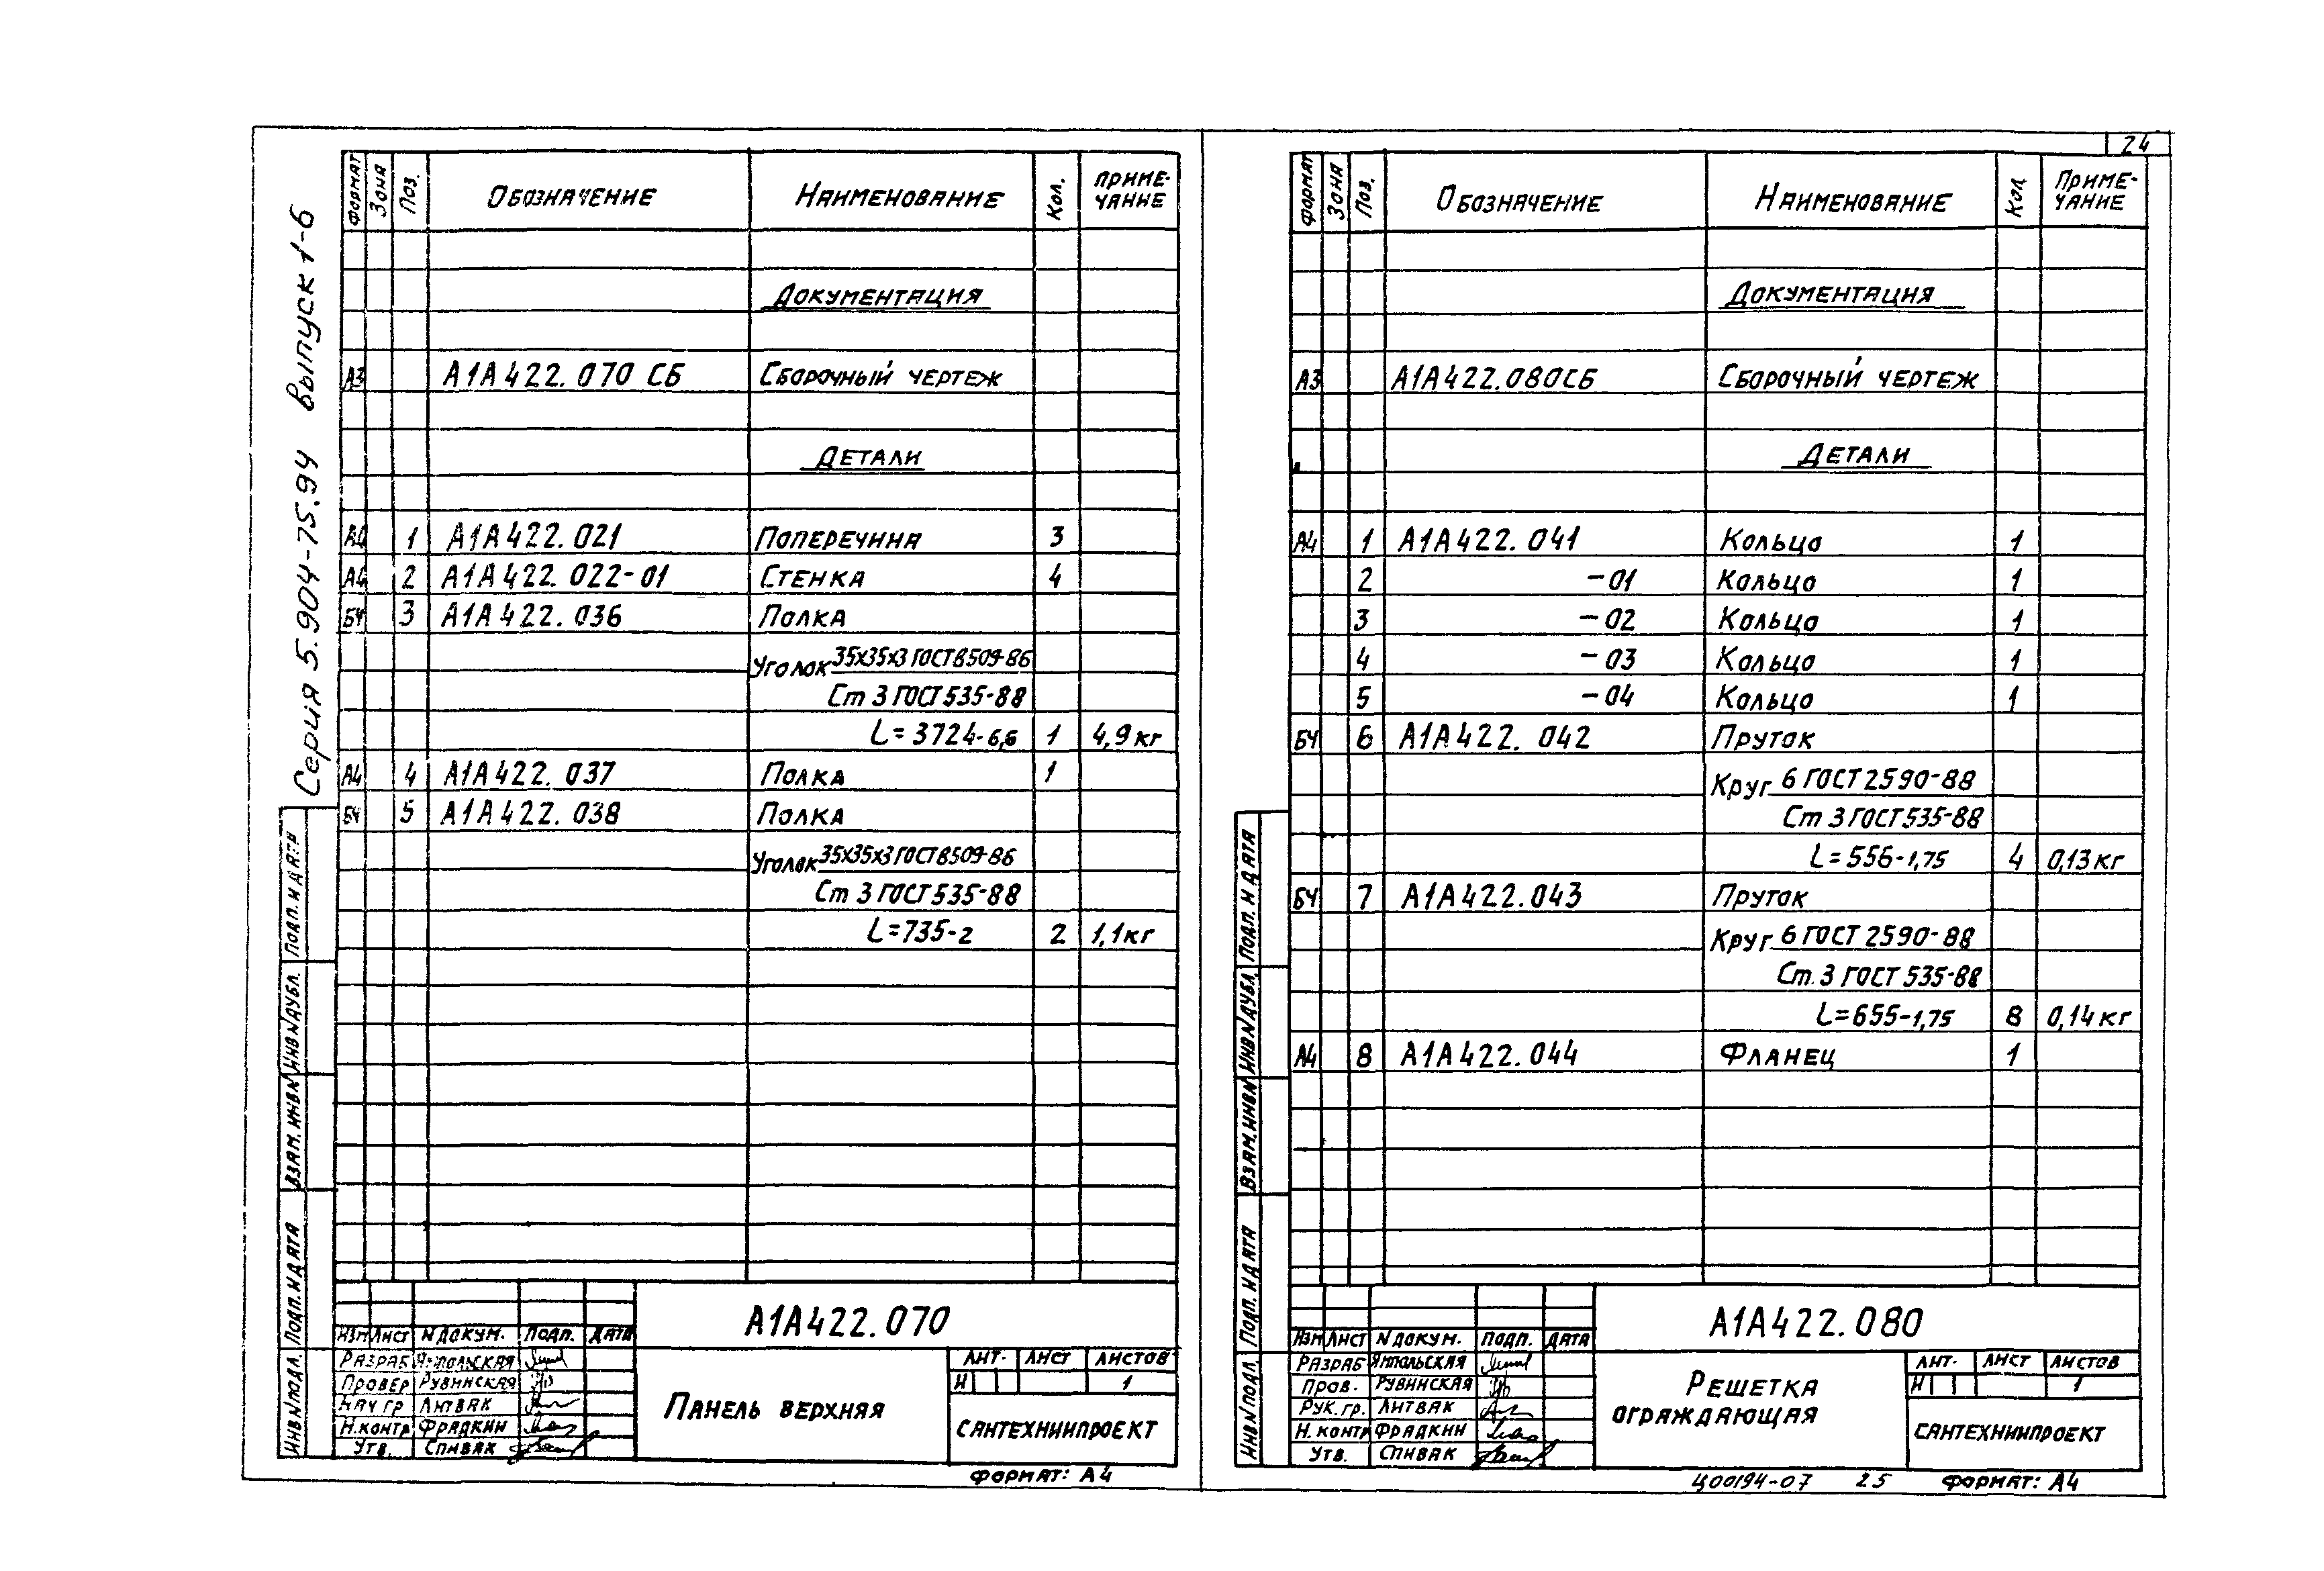 24
Серия 5.904-75.94 выпуск 1-6
Формат Зона Поз. Обозначение Наименование Кол. Приме-
чание
Документация
А3 А1А422.070 СБ Сборочный чертеж
Детали
А4 1 А1А422.021 Поперечина 3
А4 2 А1А422.022-01 Стенка 4
БЧ 3 А1А422.036 Полка
Уголок 35х35х3 ГОСТ 8509-86
Ст 3 ГОСТ 535-88
L=3724-6,6 1 4,9 кг
А4 4 А1А422.037 Полка 1
БЧ 5 А1А422.038 Полка
Уголок 35х35х3 ГОСТ 8509-86
Ст 3 ГОСТ 535-88
L=735-2 2 1,1 кг
Инв.N подл. Подп. и дата Взам.инв.N Инв.N дубл. Подп. и дата
А1А422.070
Изм Лист N докум. Подп. Дата
Разраб Ямпольская
Провер Рувинская
Нач гр Литвак
Н.контр Фрадкин
Утв. Спивак
Панель верхняя
Лит. Лист Листов
И 1
Сантехниипроект
Формат: А4
Формат Зона Поз. Обозначение Наименование Кол. Приме-
чание
Документация
А3 А1А422.080СБ Сборочный чертеж
Детали
А4 1 А1А422.041 Кольцо 1
2 -01 Кольцо 1
3 -02 Кольцо 1
4 -03 Кольцо 1
5 -04 Кольцо 1
БЧ 6 А1А422.042 Пруток
Круг 6 ГОСТ 2590-88
Ст 3 ГОСТ 535-88
L=556-1,75 4 0,13 кг
БЧ 7 А1А422.043 Пруток
Круг 6 ГОСТ 2590-88
Ст. 3 ГОСТ 535-88
L=655-1,75 8 0,14 кг
А4 8 А1А422.044 Фланец 1
Инв.N подл. Подп. и дата Взам.инв.N Инв.N дубл. Подп. и дата
А1А422.080
Изм Лист N докум. Подп. Дата
Разраб Ямпольская
Пров. Рувинская
Рук. гр. Литвак
Н. контр Фрадкин
Утв. Спивак
Решетка
ограждающая
Лит. Лист Листов
И 1
Сантехниипроект
Ц00194-07 25 Формат: А4